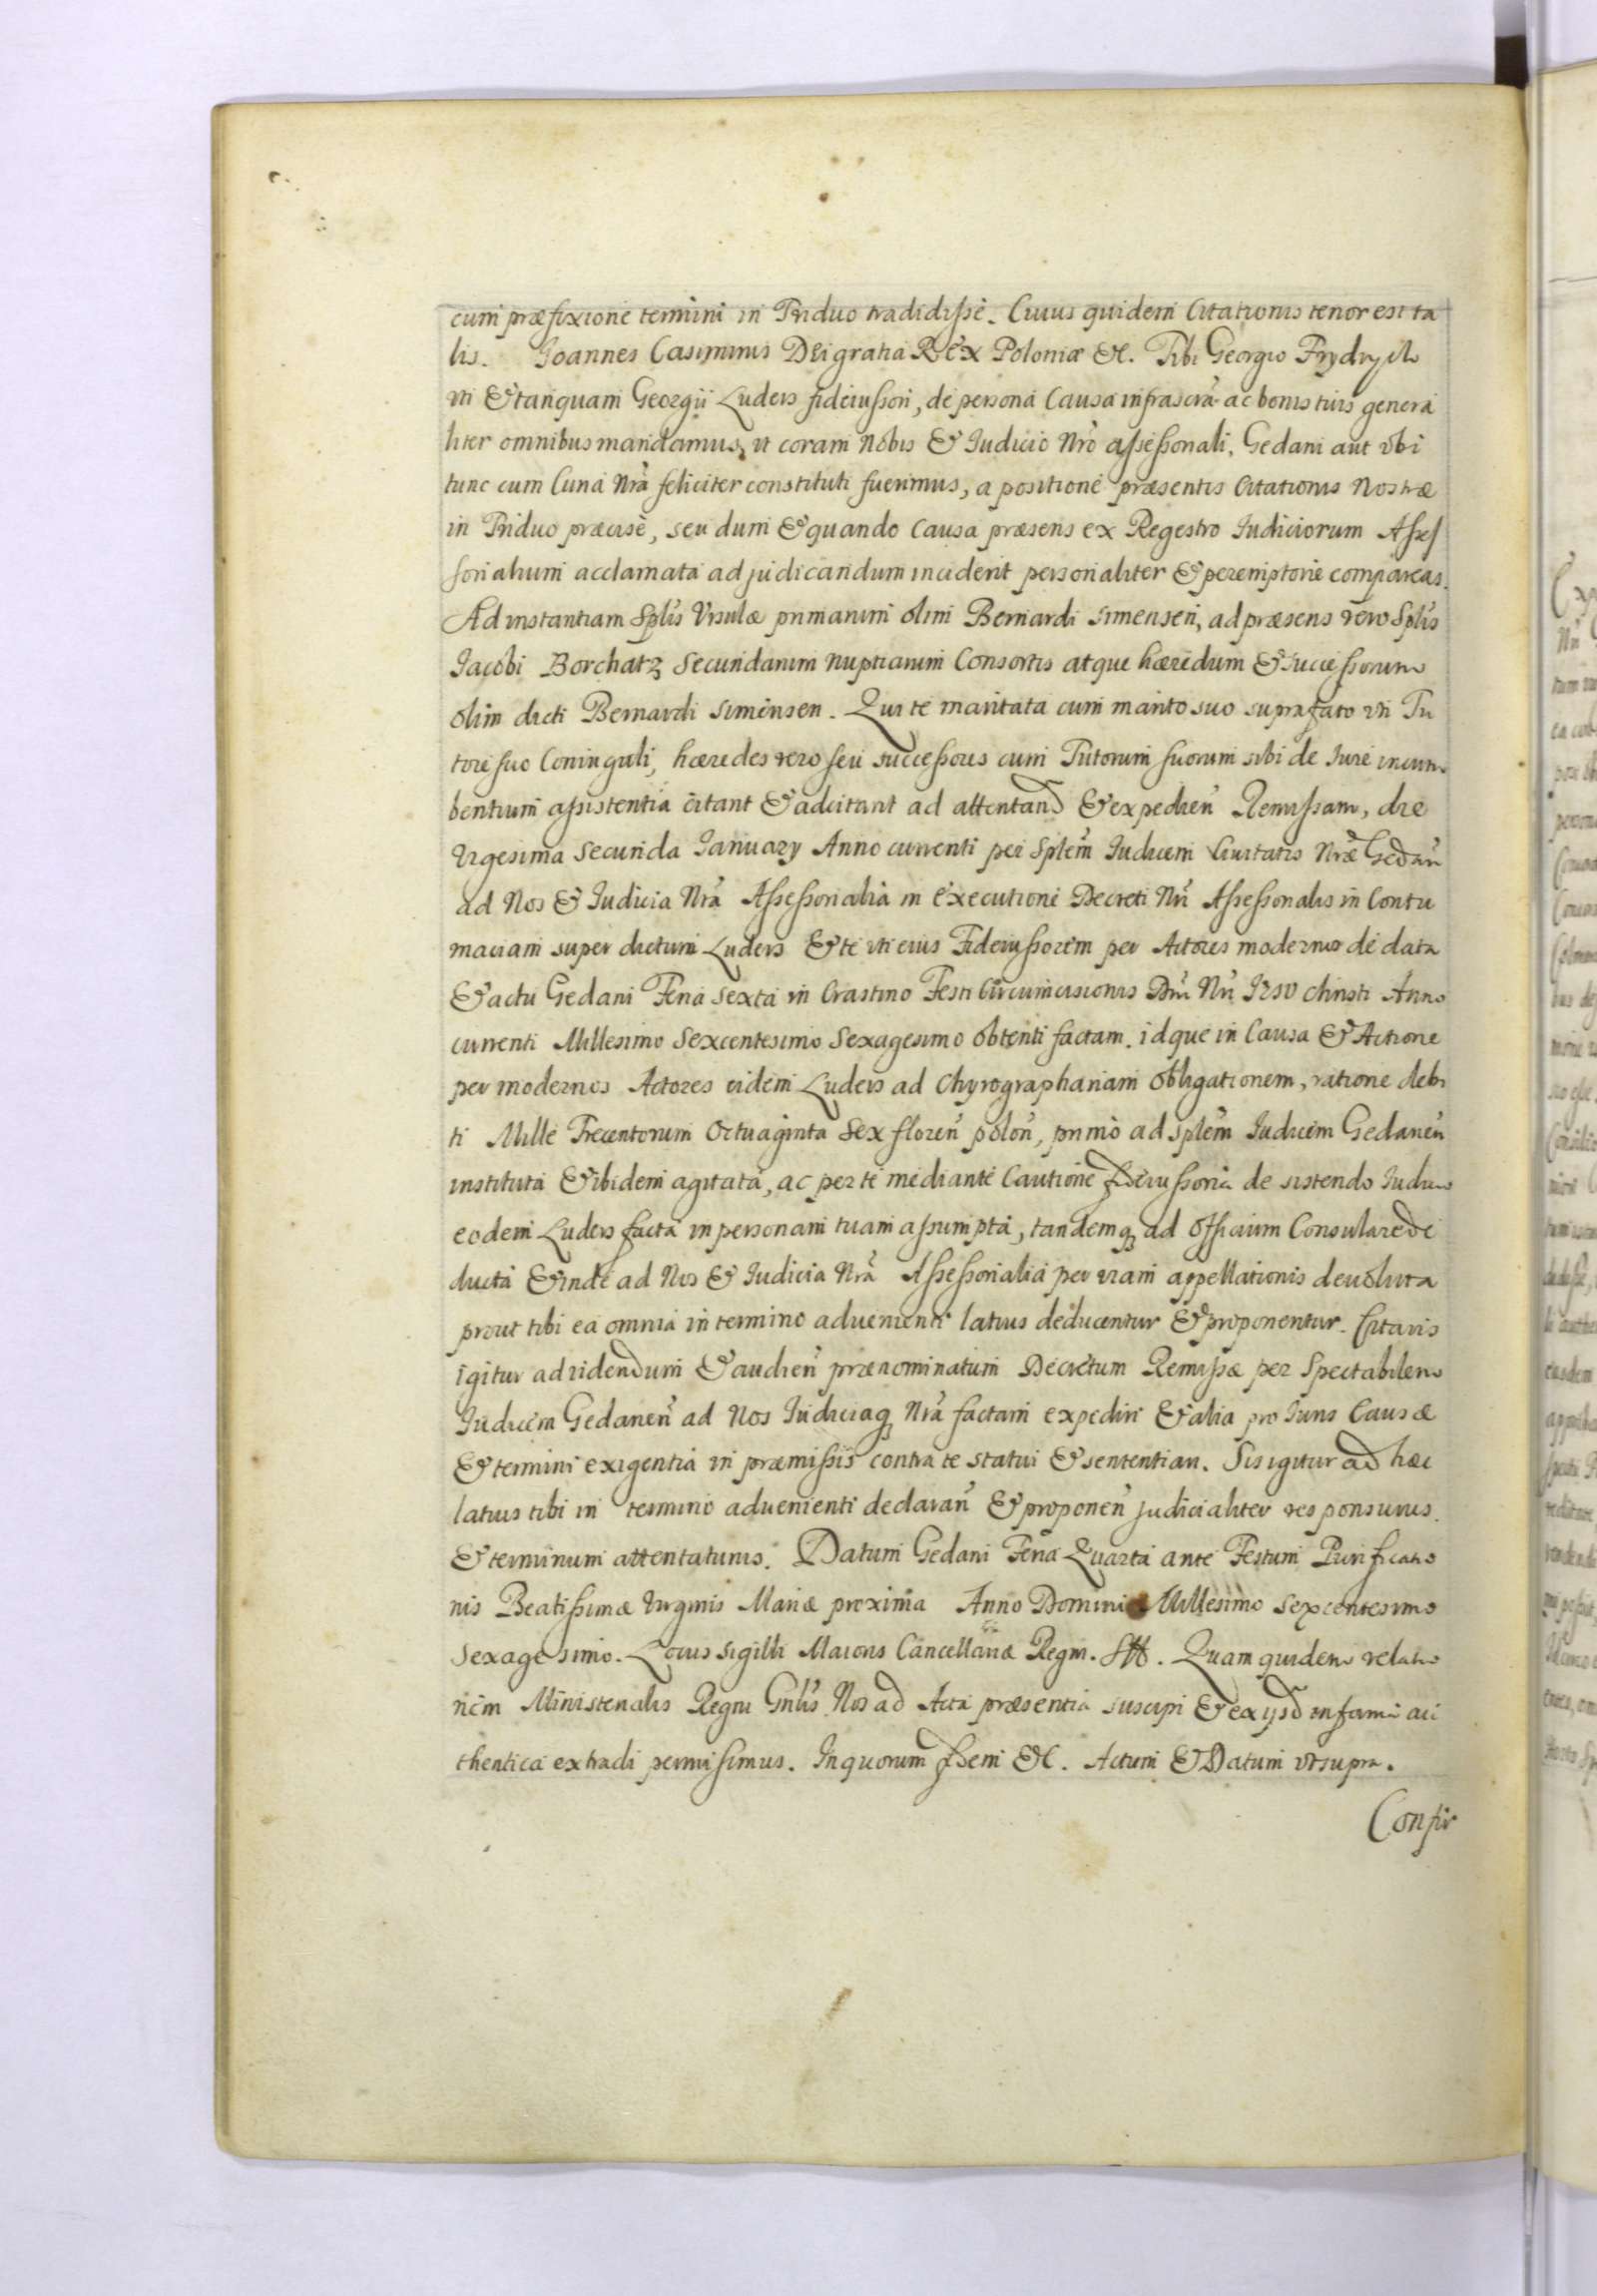 cum præfixione termini in Triduo tradidisse. Cuius quidem Citationis tenor est ta
lis. Joannes Casimirus Dei gratia Rex Poloniæ &c. Tibi Georgio Frydrych
uti & tanquam Georgii Luders fideiussori, de persona Causa infrascrã ac bonis tuis genera
liter omnibus mandamus, ut coram Nobis & Judicio Nrõ assessoriali, Gedani aut ubi
tunc cum Curia Nrã feliciter constituti fuerimus, a positione præsentis Citationis Nostræ
in Triduo præcisè, seu dum & quando Causa præsens ex Regestro Judiciorum Asses
sorialium acclamata ad judicandum inciderit personaliter & peremptorie compareas.
Ad instantiam Splis Ursulæ primarum olim Bernardi Simensen, ad præsens vero Splis
Jacobi Borchatz Secundarum nuptiarum Consortis atque hæredum & successorum
olim dicti Bernardi Simensen. Qui te maritata cum marito suo suprafato uti Tu
tore suo Coniugali, hæredes vero seu successores cum Tutorum suorum sibi de Jure incum
bentium assistentia citant & adcitant ad attentand & expedien Remissam, die
Vigesima Secunda January Anno currenti per Splem Judicem Civitatis Nræ Gedan
ad Nos & Judicia Nrã Assessorialia in executione Decreti Nri Assessorialis in Contu
maciam super dictum Luders & te uti eius Fideiussorem per Actores modernos de data
& actu Gedani Feria sexta in Crastino Festi Circumcisionis Dni Nri Jesu Christi Anno
currenti Millesimo Sexcentesimo Sexagesimo obtenti factam. idque in Causa & Actione
per modernos Actores eidem Luders ad Chyrographariam Obligationem, ratione debi
ti Mille Trecentorum Octuaginta Sex floren polon, primò ad splem Judicem Gedanen
instituta & ibidem agitata, ac per te mediante Cautione fideiussoria de sistendo Judicio
eodem Luders facta in personam tuam assumpta, tandemq ad Officium Consulare de
ducta & inde ad Nos & Judicia Nrã Assessorialia per viam appellationis devoluta
prout tibi ea omnia in termino advenienti latius deducentur & proponentur. Citaris
igitur ad videndum & audien prænominatum Decretum Remissæ per Spectabilem
Judicem Gedanen ad Nos Judiciaq Nrã factam expediri & alia pro Juris Causæ
& termini exigentia in præmissis contra te statui & sententiari. Sis igitur ad hæc
latius tibi in termino advenienti declaran & proponen judicialiter responsurus.
& terminum attentaturus. Datum Gedani Feria Quarta ante Festum Purificatio
nis Beatissimæ Virginis Mariæ proxima Anno Domini Millesimo Sexcentesimo
Sexagesimo. Locus sigilli Maioris Cancellariæ Regni. SH. Quam quidem relatio
nem Ministerialis Regni Gnlis Nos ad Acta præsentia suscipi & ex ijsd in forma au
thentica extradi permisimus. In quorum fidem &c. Actum & Datum ut supra.
Confir